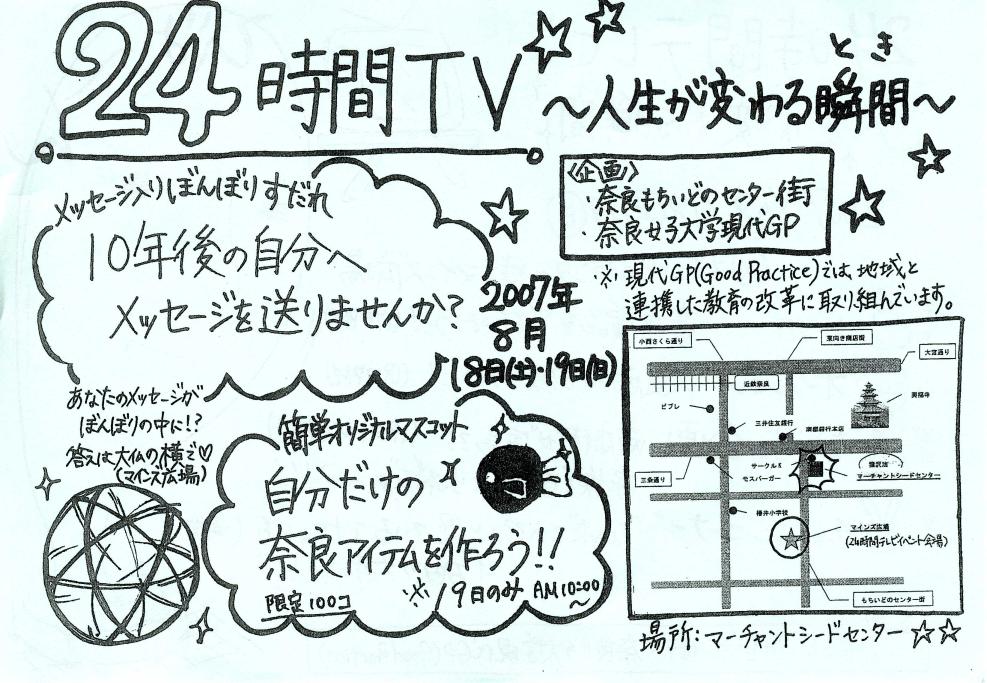 24時間TV
とき
～人生が変わる瞬間～
メッセージ入りぼんぼりすだれ
10年後の自分へ
メッセージを送りませんか?
2007年
8月
18日(土)・19日(日)
〈企画〉
・奈良もちいどのセンター街
・奈良女子大学現代GP
※現代GP(Good Practice)では、地域と
連携した教育の改革に取り組んでいます。
あなたのメッセージが
ぼんぼりの中に!?
答えは大仏の横で♡
(マインズ広場)
簡単オリジナルマスコット
自分だけの
奈良アイテムを作ろう!!
限定100コ
※19日のみ AM10:00～
小西さくら通り
東向き商店街
大宮通り
近鉄奈良
ビブレ
興福寺
三井住友銀行
南都銀行本店
サークルK
猿沢池
三条通り
モスバーガー
マーチャントシードセンター
椿井小学校
マインズ広場
(24時間テレビイベント会場)
もちいどのセンター街
場所:マーチャントシードセンター ☆☆